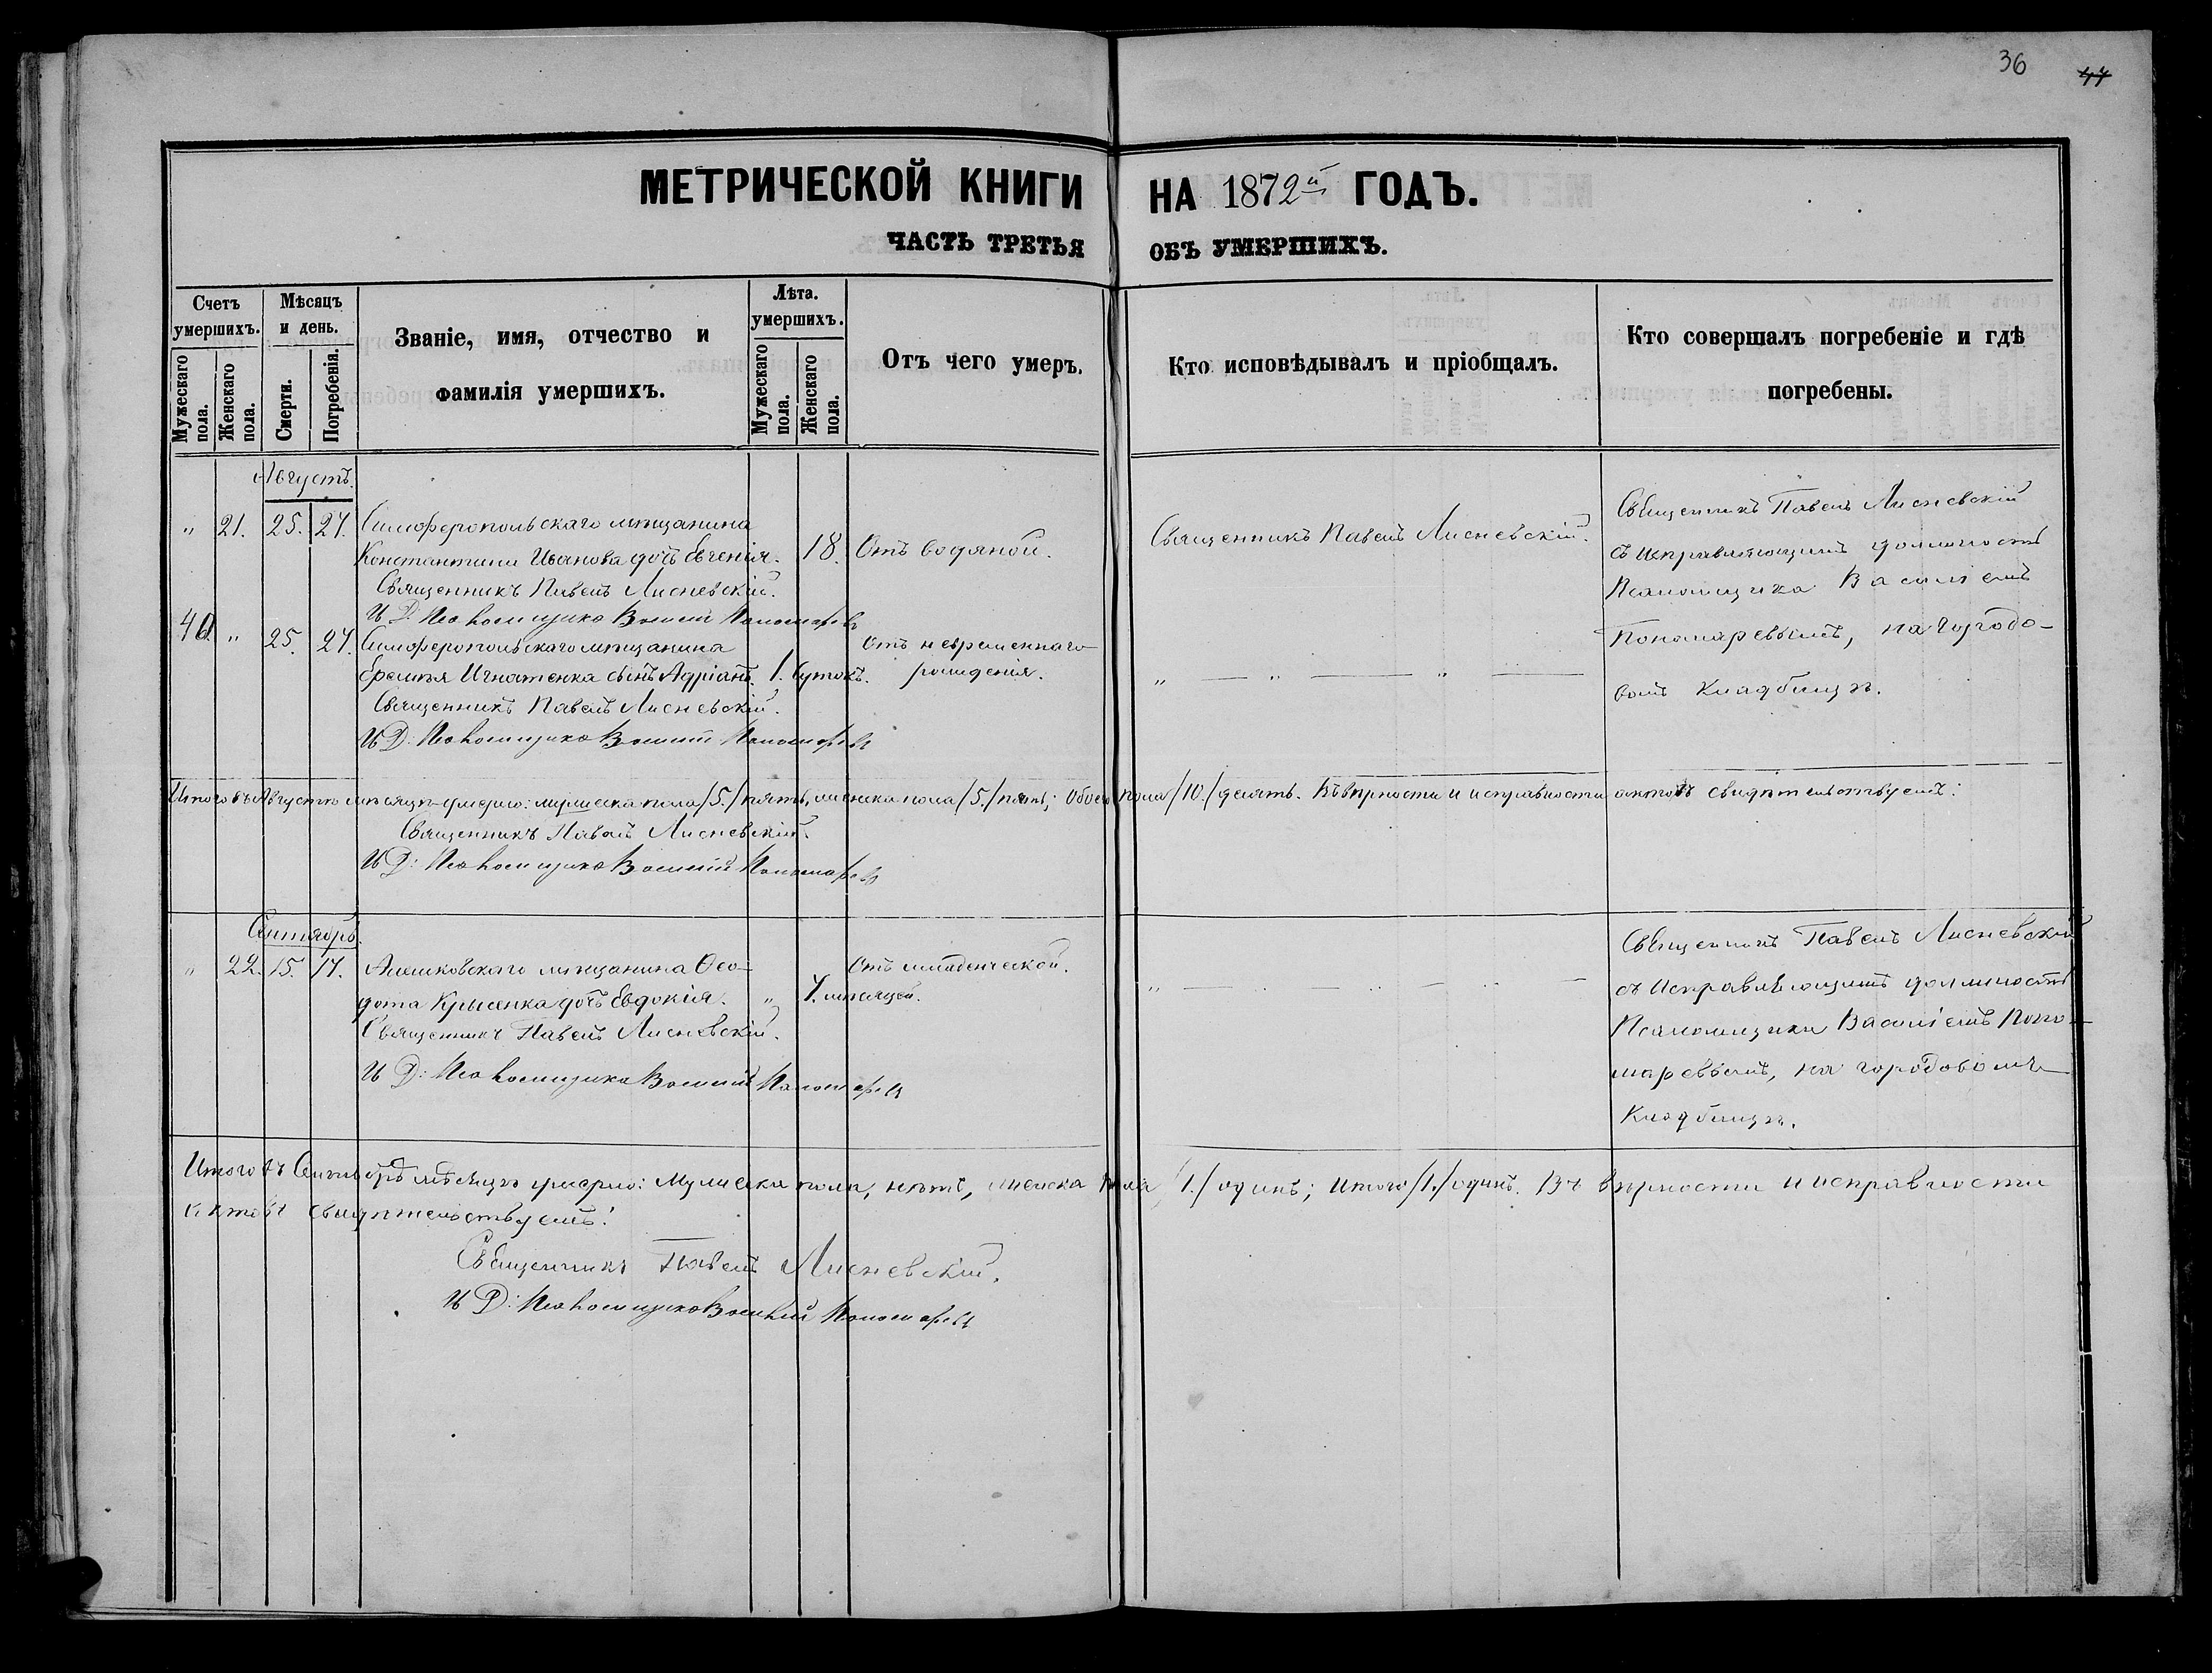 36
44
МЕТРИЧЕСКОЙ КНИГИ НА 1872й ГОДЪ.
ЧАСТЬ ТРЕТЬЯ ОБЪ УМЕРШИХЪ.
Счетъ умершихъ.
Мужескаго пола.
Женскаго пола.
Мѣсяцъ и день.
Смерти.
Погребенія.
Званіе, имя, отчество и
фамилія умершихъ.
Лѣта.
умершихъ.
Мужескаго пола.
Женскаго пола.
Отъ чего умеръ.
Кто исповѣдывалъ и пріобщалъ.
Кто совершалъ погребеніе и гдѣ
погребены.
Августъ.
" 21. 25. 27. Симферопольскаго мѣщанина
Константина Иванова дочь Евгенія. 18. Отъ водяной.
Священникъ Павелъ Лисневскій.
И Д: Псаломщика Василій Пономаревъ
Священникъ Павелъ Лисневскій.
Священникъ Павелъ Лисневскій
съ исправляющимъ должность
Псаломщика Василіемъ
Пономаревымъ, на городо-
вомъ кладбищѣ.
40 " 25. 27. Симферопольскаго мѣщанина
Еремѣя Игнатенка сынъ Адріанъ. 1. сутокъ.
Отъ невременнаго
рожденія.
" — " — " —
Священникъ Павелъ Лисневскій.
И Д: Псаломщика Василій Пономаревъ
Итого въ Августѣ мѣсяцѣ умерло: мужеска пола /5./ пять, женска пола /5./ пять; обоего пола /10./ десять. Въ вѣрности и исправности актовъ свидѣтельствуемъ:
Священникъ Павелъ Лисневскій.
И Д: Псаломщика Василій Пономаревъ
Сентябрь.
" 22. 15. 17. Алешковскаго мѣщанина Ѳео-
дота Крысенка дочь Евдокія. " 7. мѣсяцей.
Отъ младенческой.
" — " — " — " —
Священникъ Павелъ Лисневскій.
И Д: Псаломщика Василій Пономаревъ
Священникъ Павелъ Лисневскій
съ исправляющимъ должность
Псаломщика Василіемъ Поно-
маревымъ, на городовомъ
кладбищѣ.
Итого въ Сентябрѣ мѣсяцѣ умерло: мужеска пола, нѣтъ, женска пола /1./ одинъ; итого /1./ одинъ. Въ вѣрности и исправности
актовъ свидѣтельствуемъ:
Священникъ Павелъ Лисневскій.
И Д: Псаломщика Василій Пономаревъ